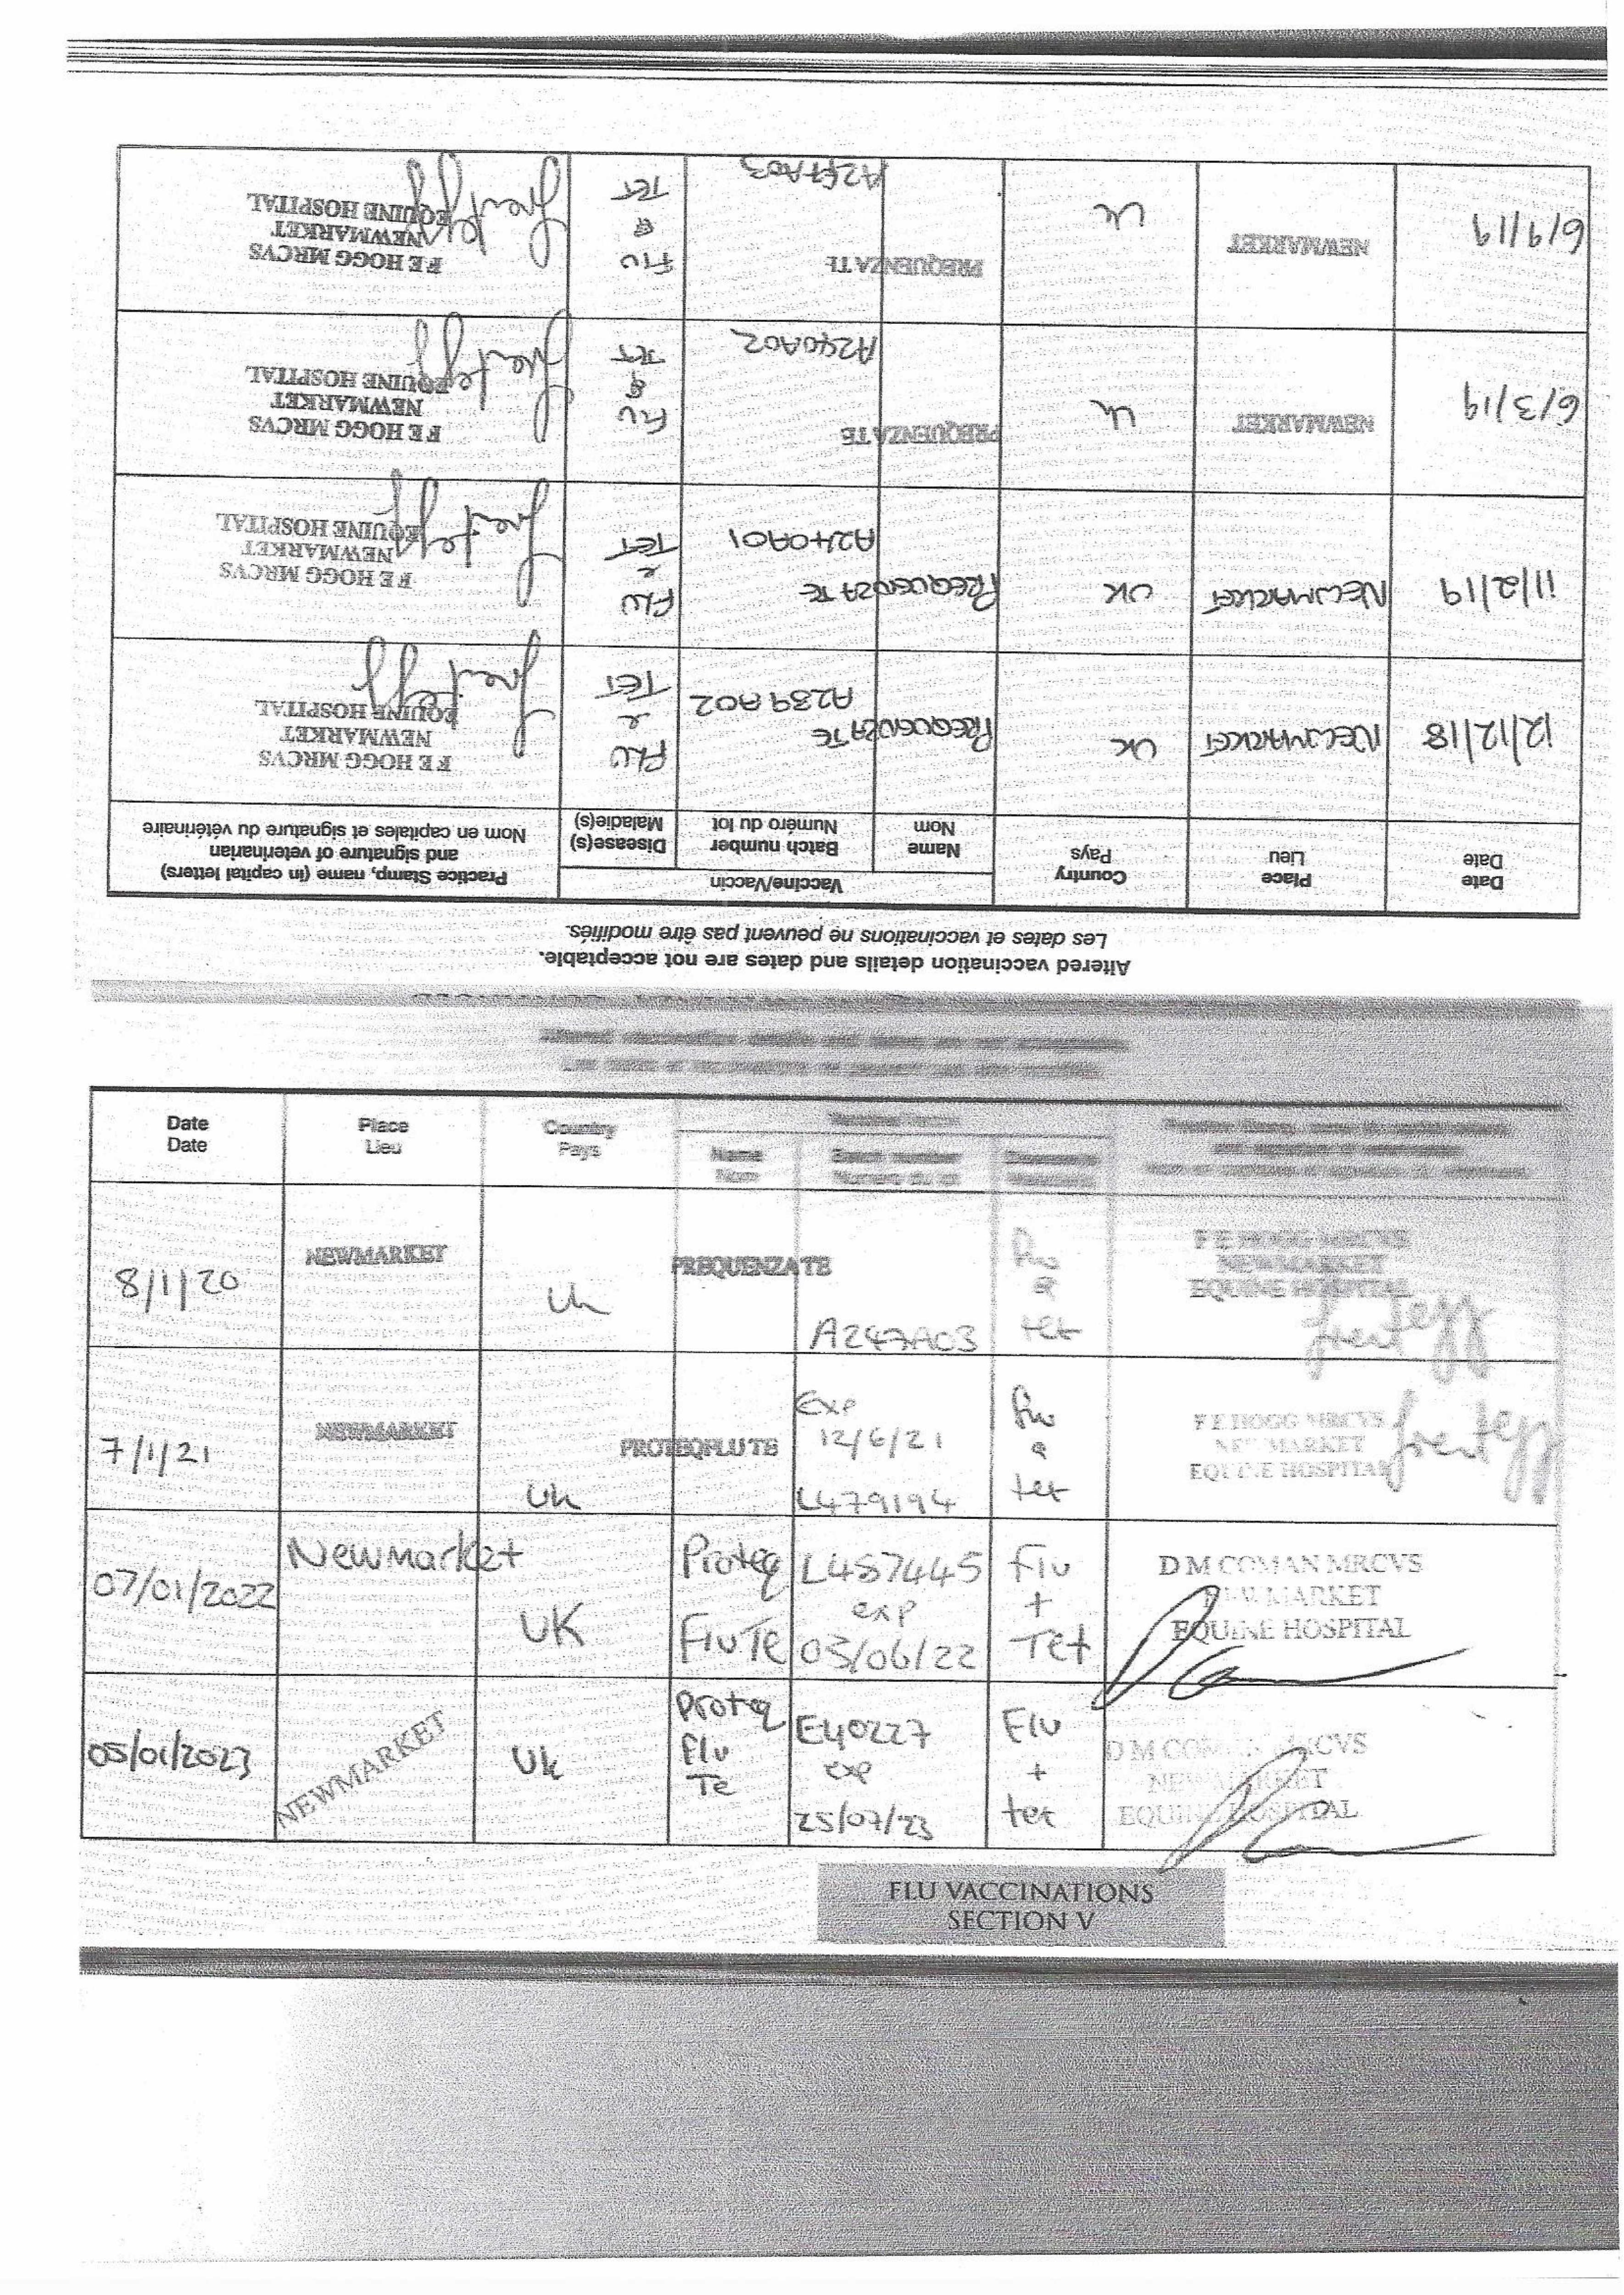 Altered vaccination details and dates are not acceptable.
Les dates et vaccinations ne peuvent pas être modifiés.
Date
Date
Place
Lieu
Country
Pays
Vaccine/Vaccin
Name
Nom
Batch number
Numéro du lot
Disease(s)
Maladie(s)
Practice Stamp, name (in capital letters)
and signature of veterinarian
Nom en capitales et signature du vétérinaire
12/12/18
NEWMARKET
UK
PREQUENZA TE
A239A02
FLU
&
TET
F E HOGG MRCVS
NEWMARKET
EQUINE HOSPITAL
11/2/19
NEWMARKET
UK
PREQUENZA TE
A240A01
FLU
&
TET
F E HOGG MRCVS
NEWMARKET
EQUINE HOSPITAL
6/3/19
NEWMARKET
UK
PREQUENZA TE
A240A02
FLU
&
TET
F E HOGG MRCVS
NEWMARKET
EQUINE HOSPITAL
6/9/19
NEWMARKET
UK
PREQUENZA TE
FLU
&
TET
F E HOGG MRCVS
NEWMARKET
EQUINE HOSPITAL
Altered vaccination details and dates are not acceptable.
Date
Date
Place
Lieu
Country
Pays
Name
Nom
Batch number
Numéro du lot
8/1/20
NEWMARKET
UK
PREQUENZA TE
A247A03
flu
&
tet
F E HOGG MRCVS
NEWMARKET
EQUINE HOSPITAL
7/1/21
NEWMARKET
UK
PROTEQFLU TE
Exp
12/6/21
L479194
flu
&
tet
F E HOGG MRCVS
NEWMARKET
EQUINE HOSPITAL
07/01/2022
Newmarket
UK
Proteq
Flu Te
L487445
exp
03/06/22
Flu
+
Tet
D M COMAN MRCVS
NEWMARKET
EQUINE HOSPITAL
05/01/2023
NEWMARKET
UK
Proteq
Flu
Te
E40227
exp
25/07/23
Flu
+
tet
D M COMAN MRCVS
NEWMARKET
EQUINE HOSPITAL
FLU VACCINATIONS
SECTION V